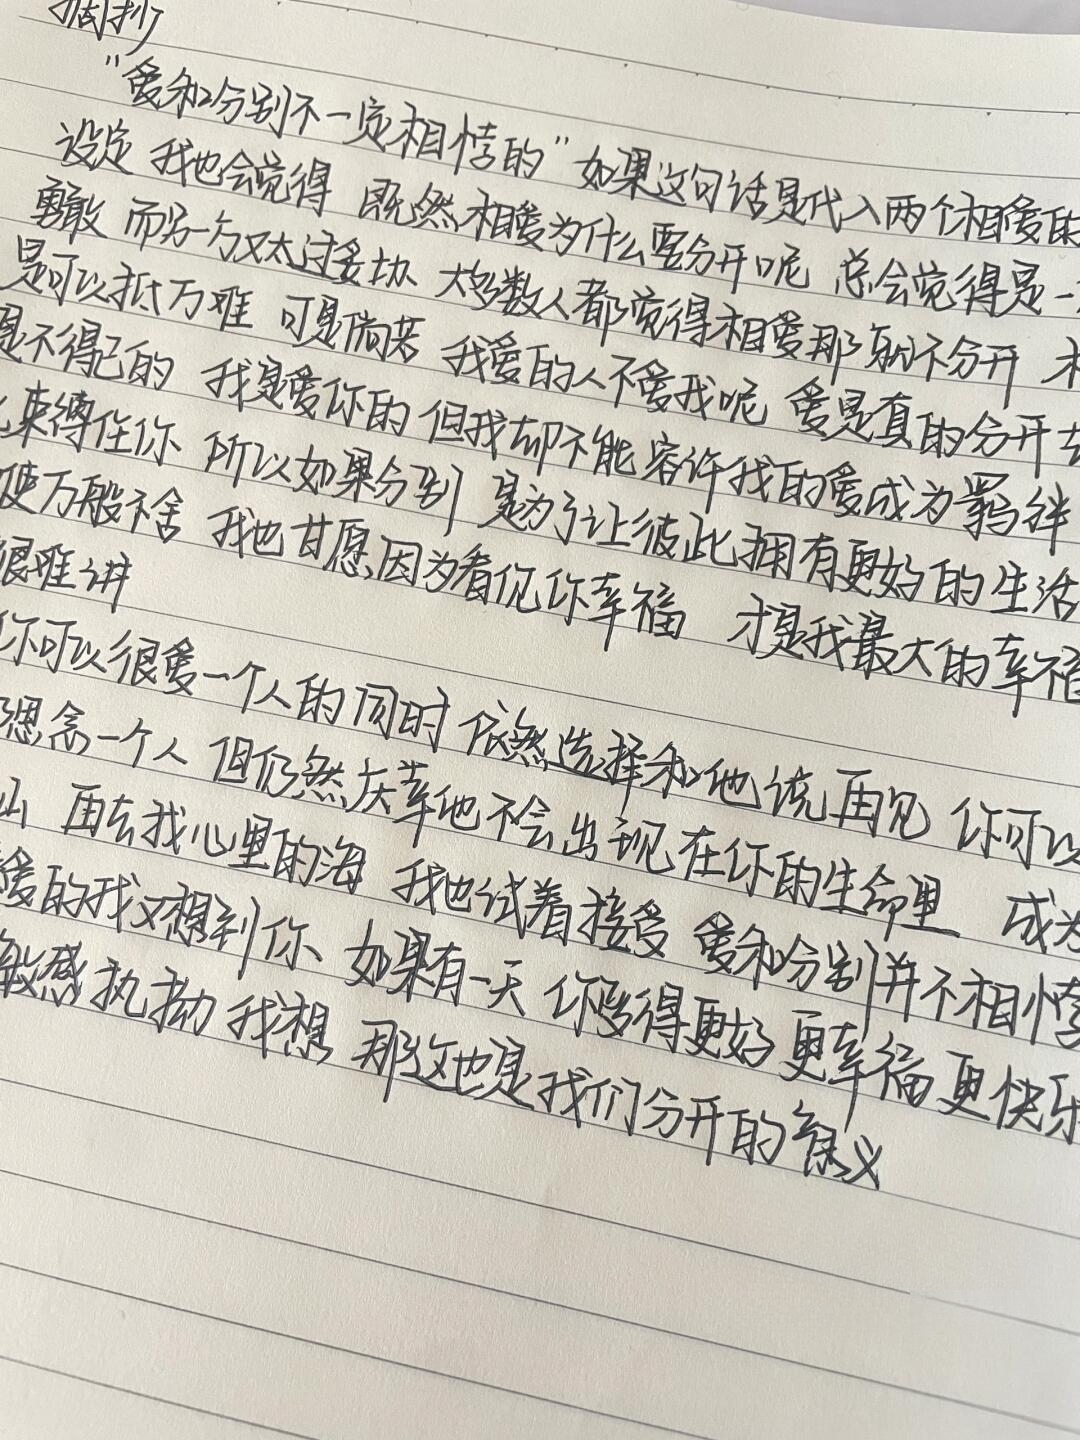 摘抄
"爱和分别不一定相悖的"如果这句话是代入两个相爱的
设定 我也会觉得 既然相爱为什么要分开呢 总会觉得是一
勇敢 而另一方又太过妥协 大多数人都觉得相爱那就不分开
是可以抵万难 可是倘若 我爱的人不爱我呢 爱是真的分开
是不得已的 我是爱你的 但我却不能容许我的爱成为羁绊
束缚住你 所以如果分别 是为了让彼此拥有更好的生活
使万般不舍 我也甘愿因为看见你幸福 才是我最大的幸福
很难讲
你可以很爱一个人的同时 依然选择和他说再见 你可以
思念一个人 但仍然庆幸他不会出现在你的生命里 成为
山 再去我心里的海 我也试着接受 爱和分别并不相悖
爱的我又想到你 如果有一天 你变得更好 更幸福 更快乐
敏感执拗 我想 那这也是我们分开的意义